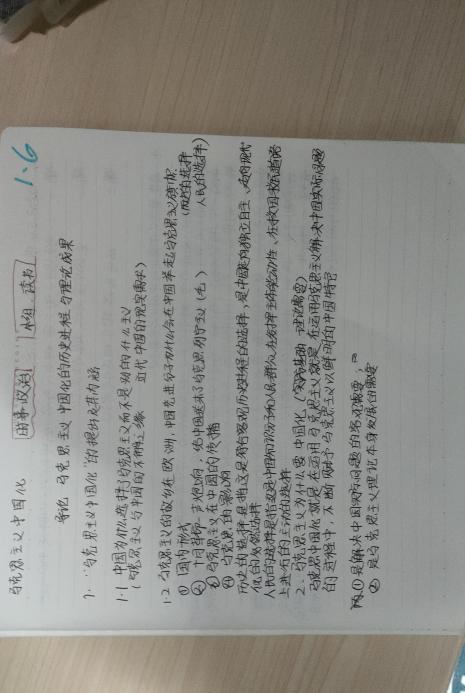 1.6
马克思主义中国化
时事政治
小组、读书
导论 马克思主义中国化的历史进程与理论成果
1. "马克思主义中国化"的提出及其内涵
1.1 中国为什么选择了马克思主义而不是别的什么主义
(马克思主义与中国的 近代中国的现实需求)
1.2 马克思主义的故乡在欧洲,中国先进分子为什么会在中国举起马克思主义旗帜
(历史的选择
人民的选择)
① 国内形式
② 十月革命一声炮响,给中国送来了马克思列宁主义(毛)
③ 马克思主义在中国的传播
④ 马克思
历史的选择是指这是符合客观历史进程的选择,是中国走向独立自主、走向现代
化的必然选择
人民的选择是指这是中国知识分子和人民群众在发挥主体能动性、在救国救民道路
上进行的主动的选择
2. 马克思主义为什么要中国化(实践基础 理论需要)
马克思中国化就是在运用马克思主义就是在运用马克思主义解决中国实际问题
的过程中,不断赋予马克思主义以鲜明的中国特色
① 是解决中国实际问题的客观需要;
② 是马克思主义理论本身发展的需要